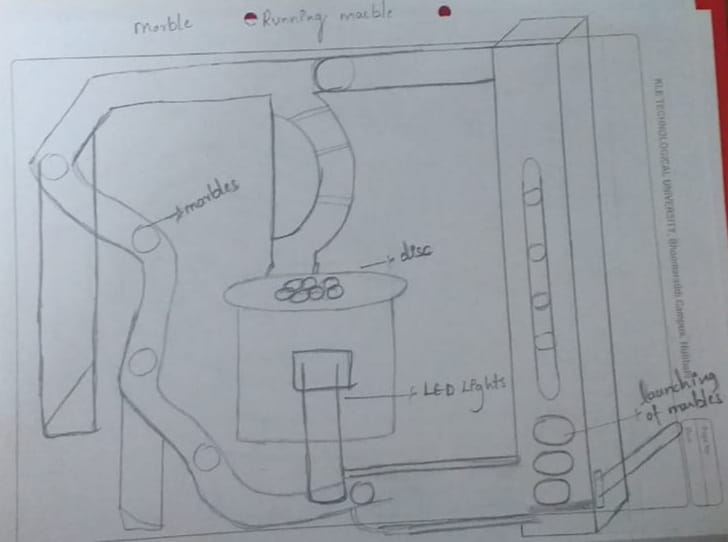 marble Running marble
marbles
disc
LED Lights
launching
of marbles
KLE TECHNOLOGICAL UNIVERSITY, Bhoomaraddi Campus, Hubballi
Page No